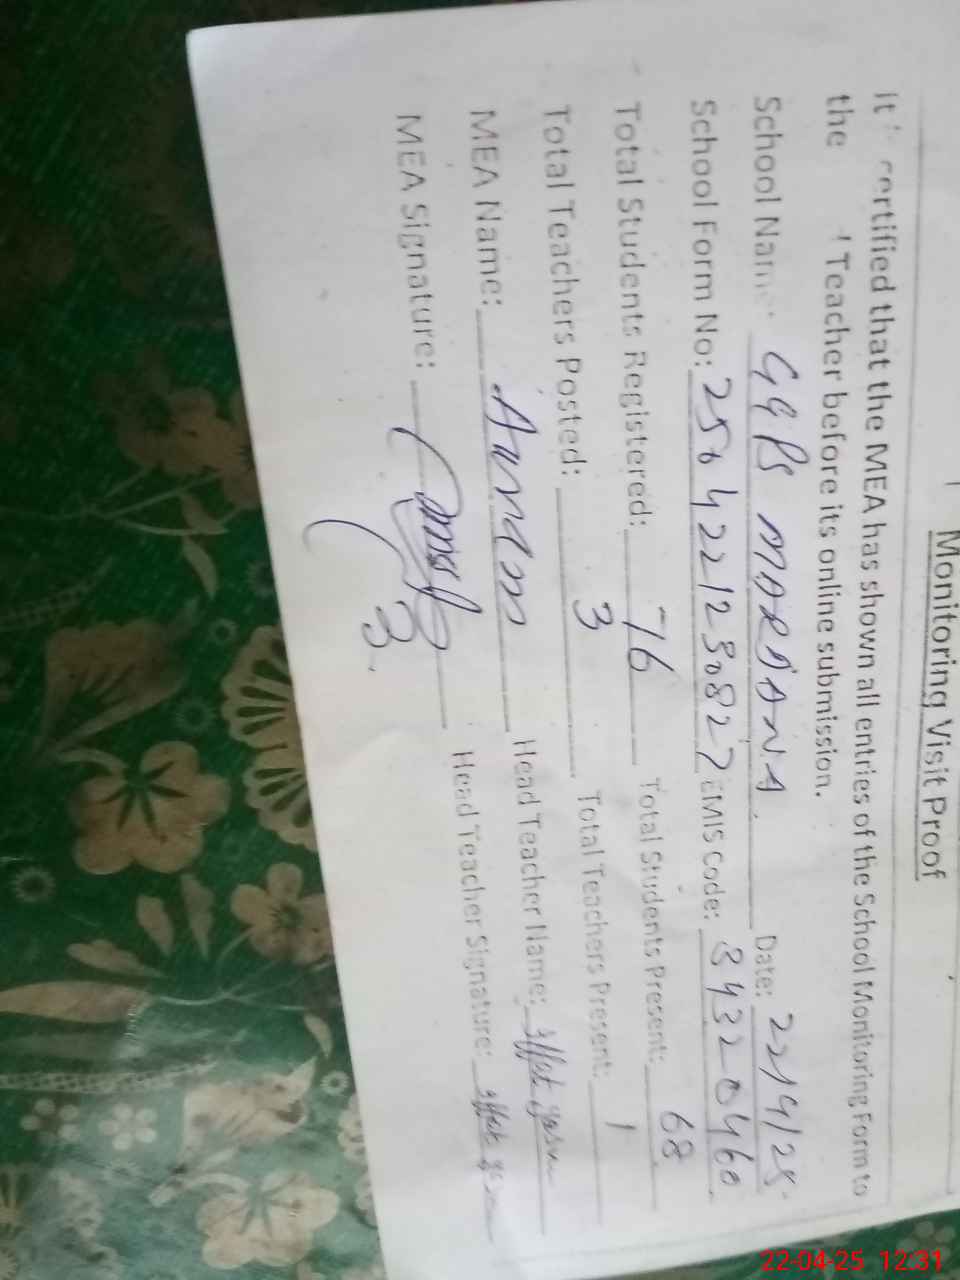 Monitoring Visit Proof
It certified that the MEA has shown all entries of the School Monitoring Form to
the Teacher before its online submission.
School Name: GGPS MARDANA. Date: 22/4/25.
School Form No: 2504221230827 EMIS Code: 84320460
Total Students Registered: 76 Total Students Present: 68
Total Teachers Posted: 3 Total Teachers Present: 1
MEA Name: Head Teacher Name: Iffat
MEA Signature: Head Teacher Signature: Iffat
3.
22-04-25 12:31